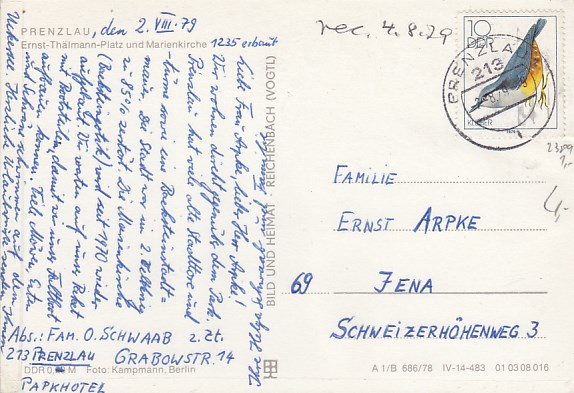 PRENZLAU, den 2.VIII.79
Ernst-Thälmann-Platz und Marienkirche 1235 erbaut
Liebe Frau Arpke, lieber Herr Arpke!
Wir wohnen dicht gegenüber dem Park.
Prenzlau hat viele alte Stadttore und
-türme sowie eine Backsteinstadt-
mauer. Die Stadt war im 2. Weltkrieg
zu 85% zerstört. Die Marienkirche
(Backsteingotik) wird seit 1970 wieder
aufgebaut. Wir warten auf unser Paket
mit Ersatzteilen, damit wir unser Faltboot
aufbauen können. Viele Möwen, Enten
und Schwäne schwimmen auf dem
Uckersee. Herzliche Urlaubsgrüße senden Ihnen
Abs.: FAM. O. SCHWAAB z. Zt.
213 PRENZLAU GRABOWSTR. 14
PARKHOTEL
DDR 0, M Foto: Kampmann, Berlin
BILD UND HEIMAT REICHENBACH (VOGTL)
rec. 4.8.79
10
DDR
KLEIBER
PRENZLAU
213
2389
1,-
4,-
FAMILIE
ERNST ARPKE
69 JENA
SCHWEIZERHÖHENWEG 3
A 1/B 686/78 IV-14-483 01 03 08 016